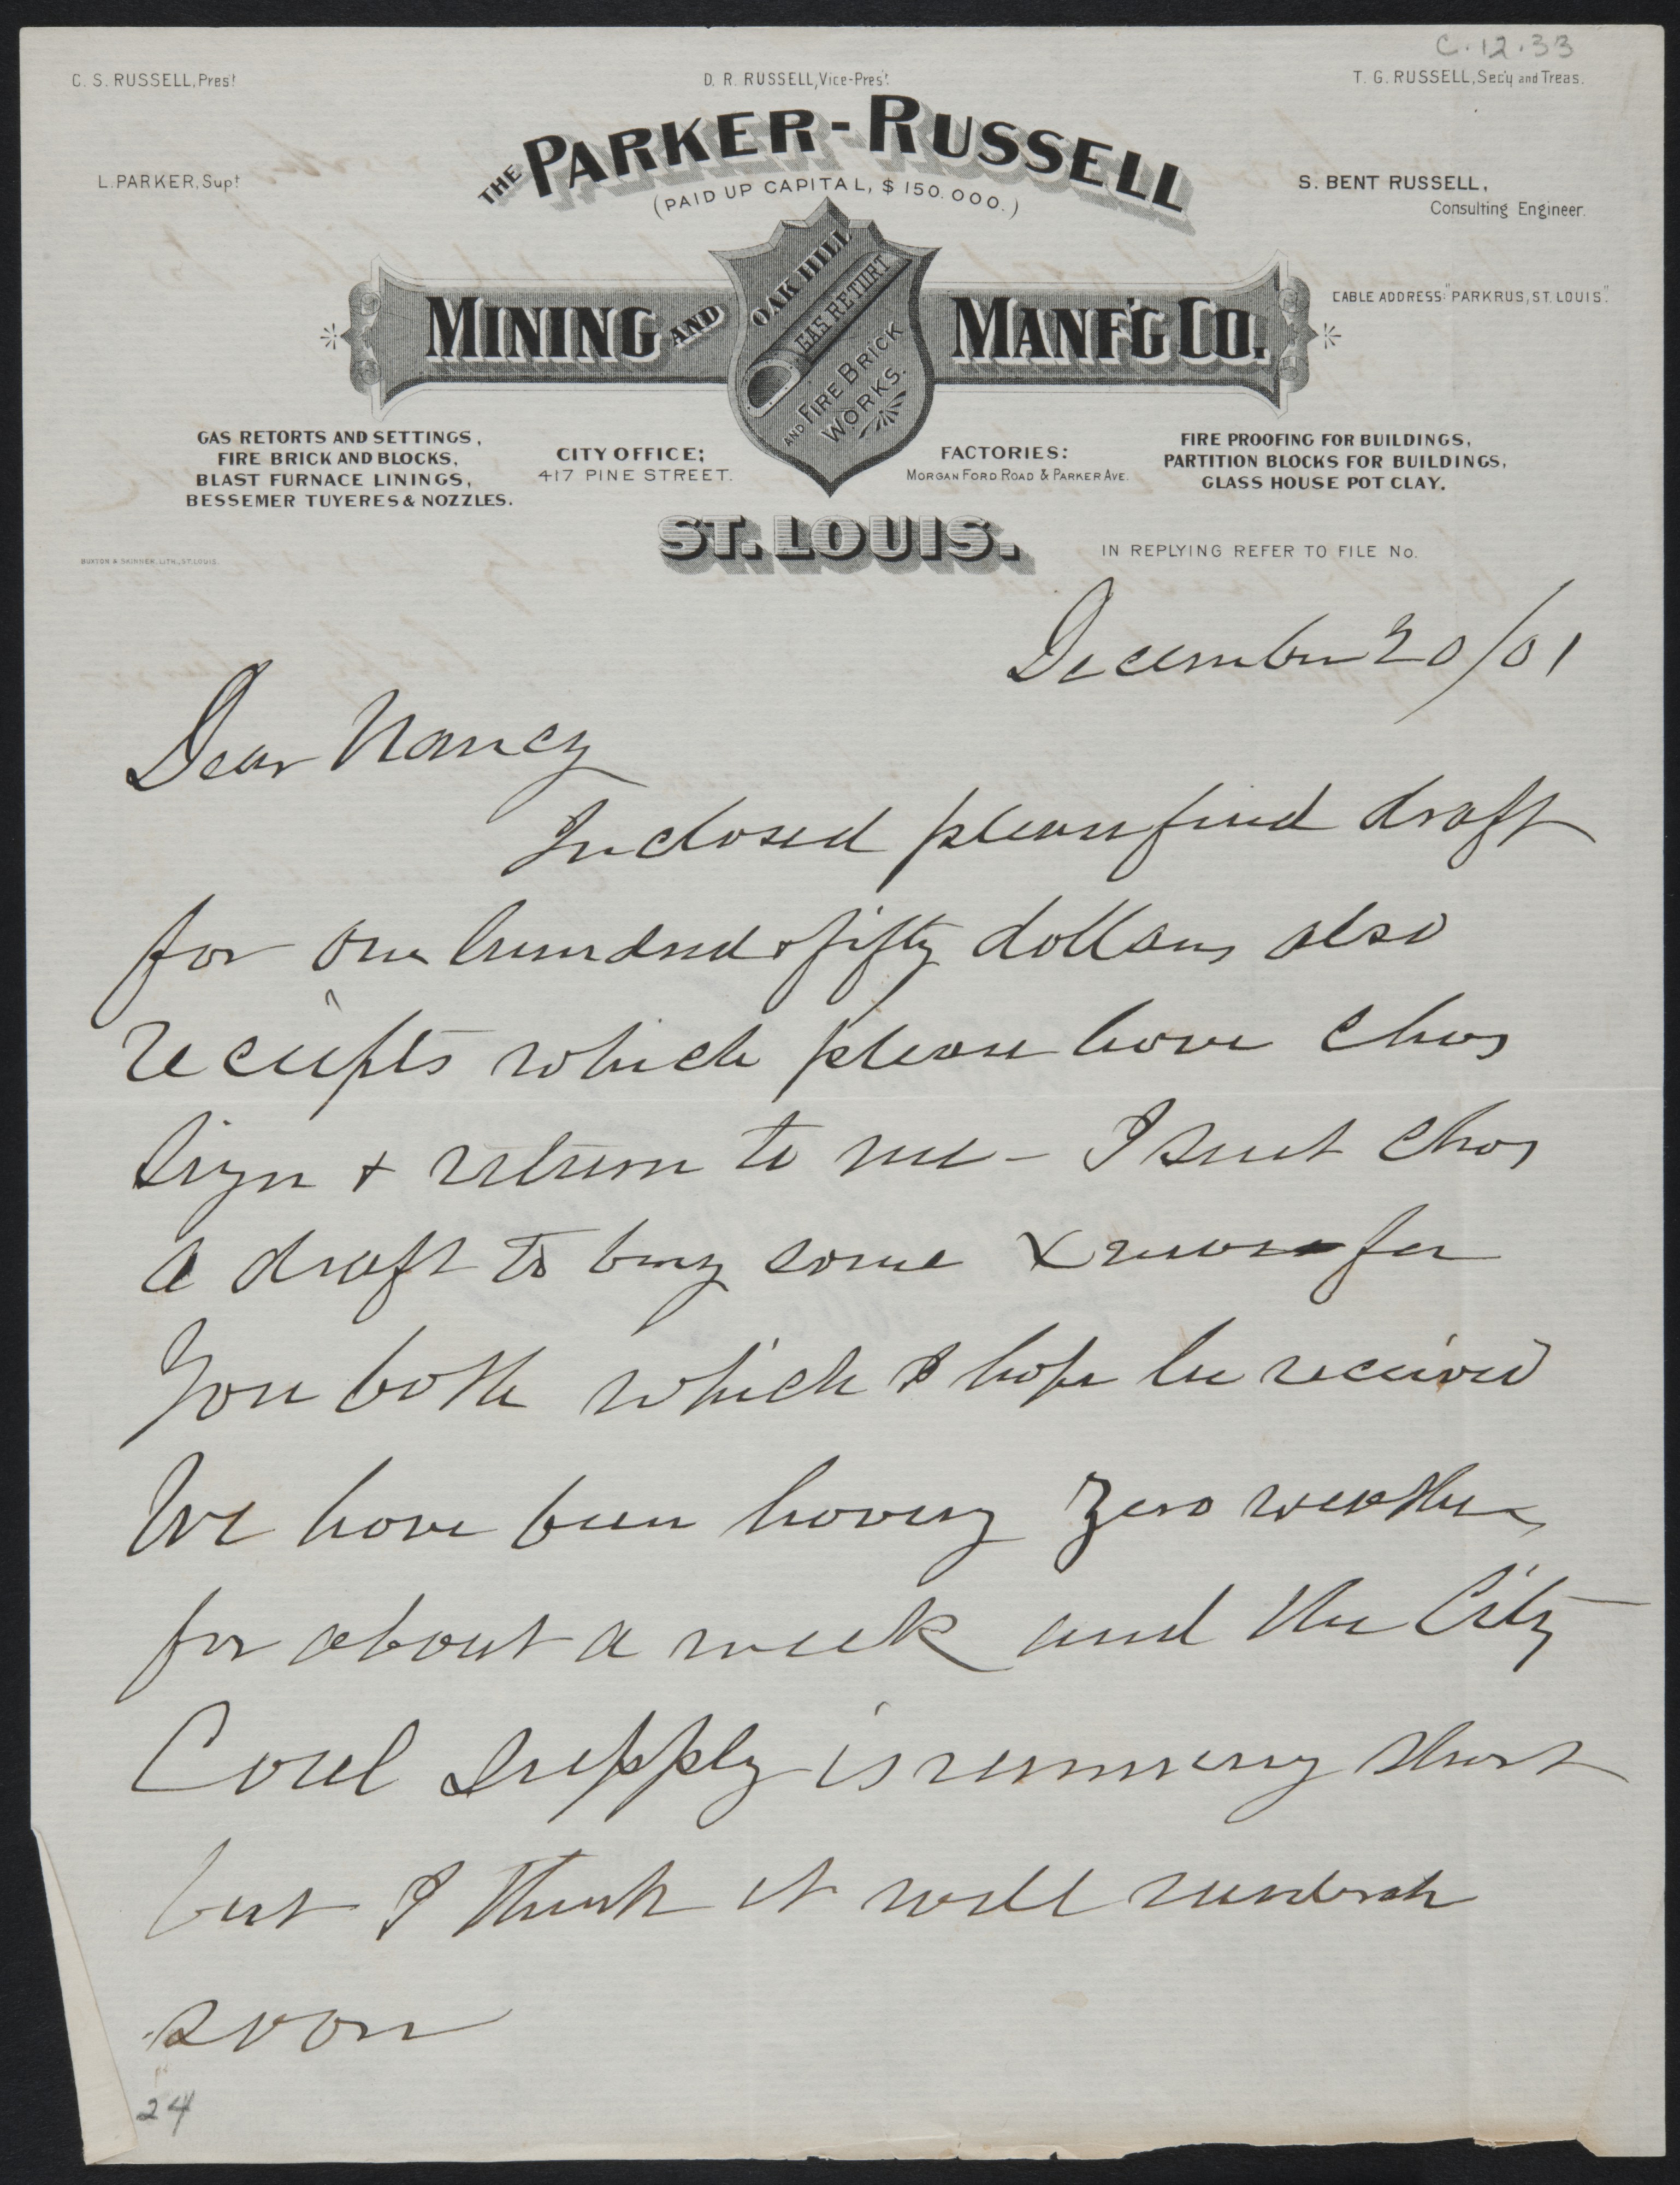 C.12.33
C. S. RUSSELL, Prest.
D. R. RUSSELL, Vice-Prest.
T. G. RUSSELL, Sec'y and Treas.
THE PARKER-RUSSELL
(PAID UP CAPITAL, $150.000.)
L. PARKER, Supt
S. BENT RUSSELL,
Consulting Engineer.
MINING AND
OAK HILL
GAS RETORT
AND FIRE BRICK
WORKS.
MANF'G CO.
CABLE ADDRESS: "PARKRUS, ST. LOUIS".
GAS RETORTS AND SETTINGS,
FIRE BRICK AND BLOCKS,
BLAST FURNACE LININGS,
BESSEMER TUYERES & NOZZLES.
CITY OFFICE;
417 PINE STREET.
FACTORIES:
MORGAN FORD ROAD & PARKER AVE.
FIRE PROOFING FOR BUILDINGS,
PARTITION BLOCKS FOR BUILDINGS,
GLASS HOUSE POT CLAY.
ST. LOUIS.
BUXTON & SKINNER, LITH., ST. LOUIS.
IN REPLYING REFER TO FILE No.
December 20/01
Dear Nancy
Inclosed please find draft
for one hundred & fifty dollars also
reciepts which please have Chas
sign & return to me - I sent Chas
a draft to buy some Xmas for
you both which I hope he received
We have been having zero weather
for about a week and the City
Coal supply is running short
but I think it will
soon
24